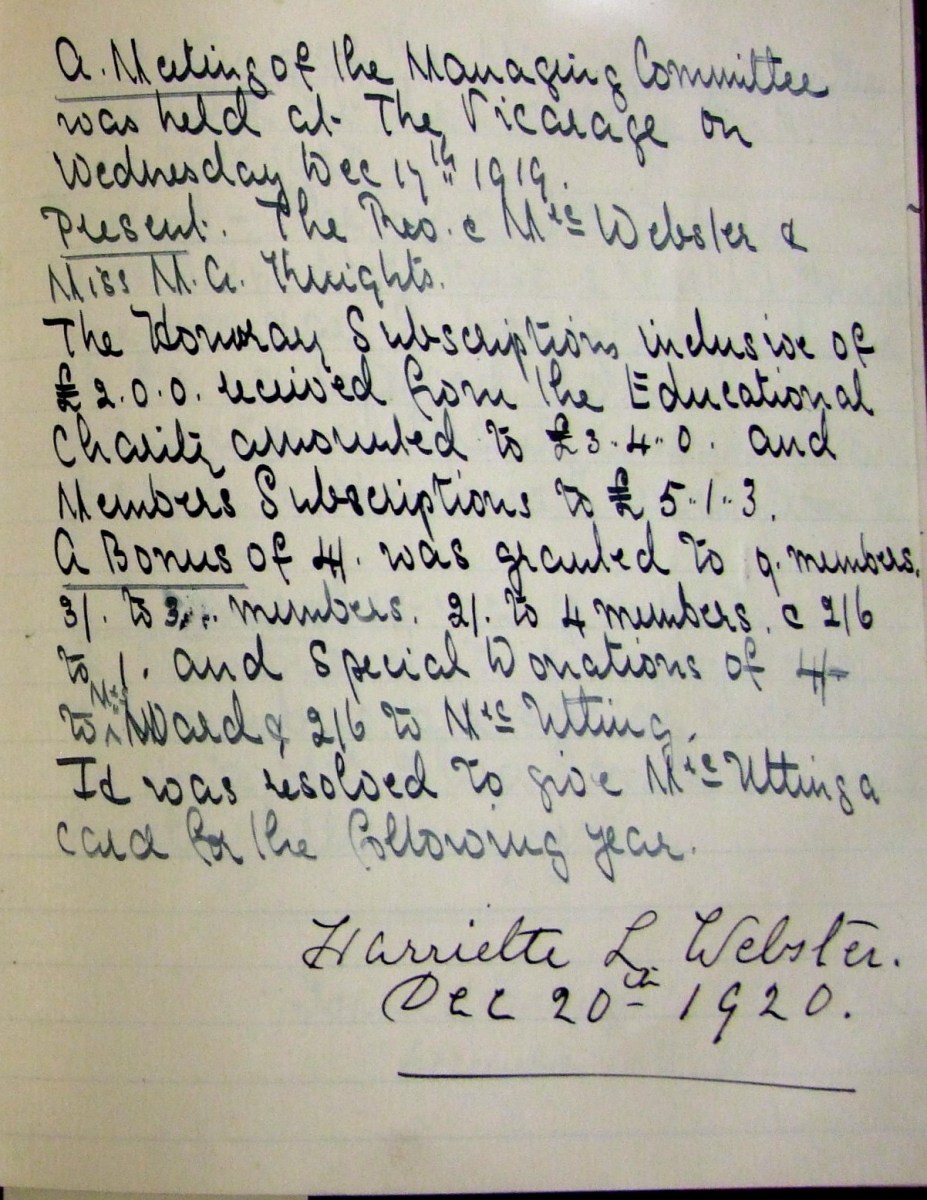 A. Meeting of the Managing Committee
was held at The Vicarage on
Wednesday Dec 17th 1919.
Present. The Rev. & Mrs Webster &
Miss M. A. Knights.
The Honoray Subscriptions inclusive of
£2.0.0. received from the Educational
Charity amounted to £3.4.0. and
Members Subscriptions to £5.1.3.
A Bonus of 4/. was granted to 9. members.
3/. to 3 members. 2/. to 4 members. & 2/6
to 1. and Special Donations of 4/-
to Mrs Ward & 2/6 to Mrs Utting.
It was resolved to give Mrs Utting a
card for the following year.
Harriette L. Webster.
Dec 20th 1920.